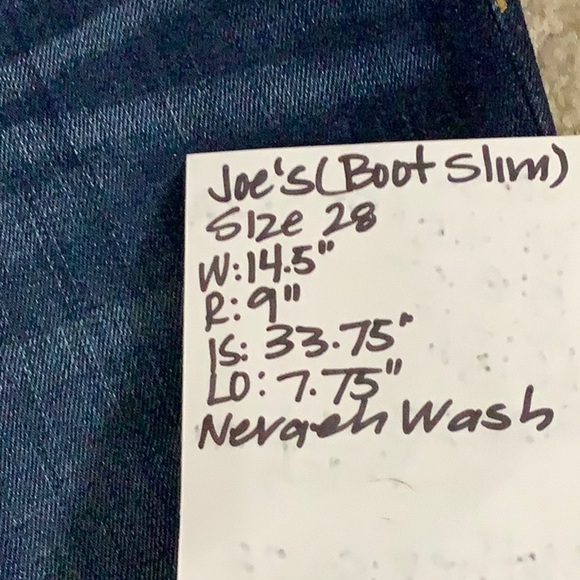 Joe's (Boot Slim)
Size 28
W: 14.5"
R: 9"
IS: 33.75"
LO: 7.75"
Wash